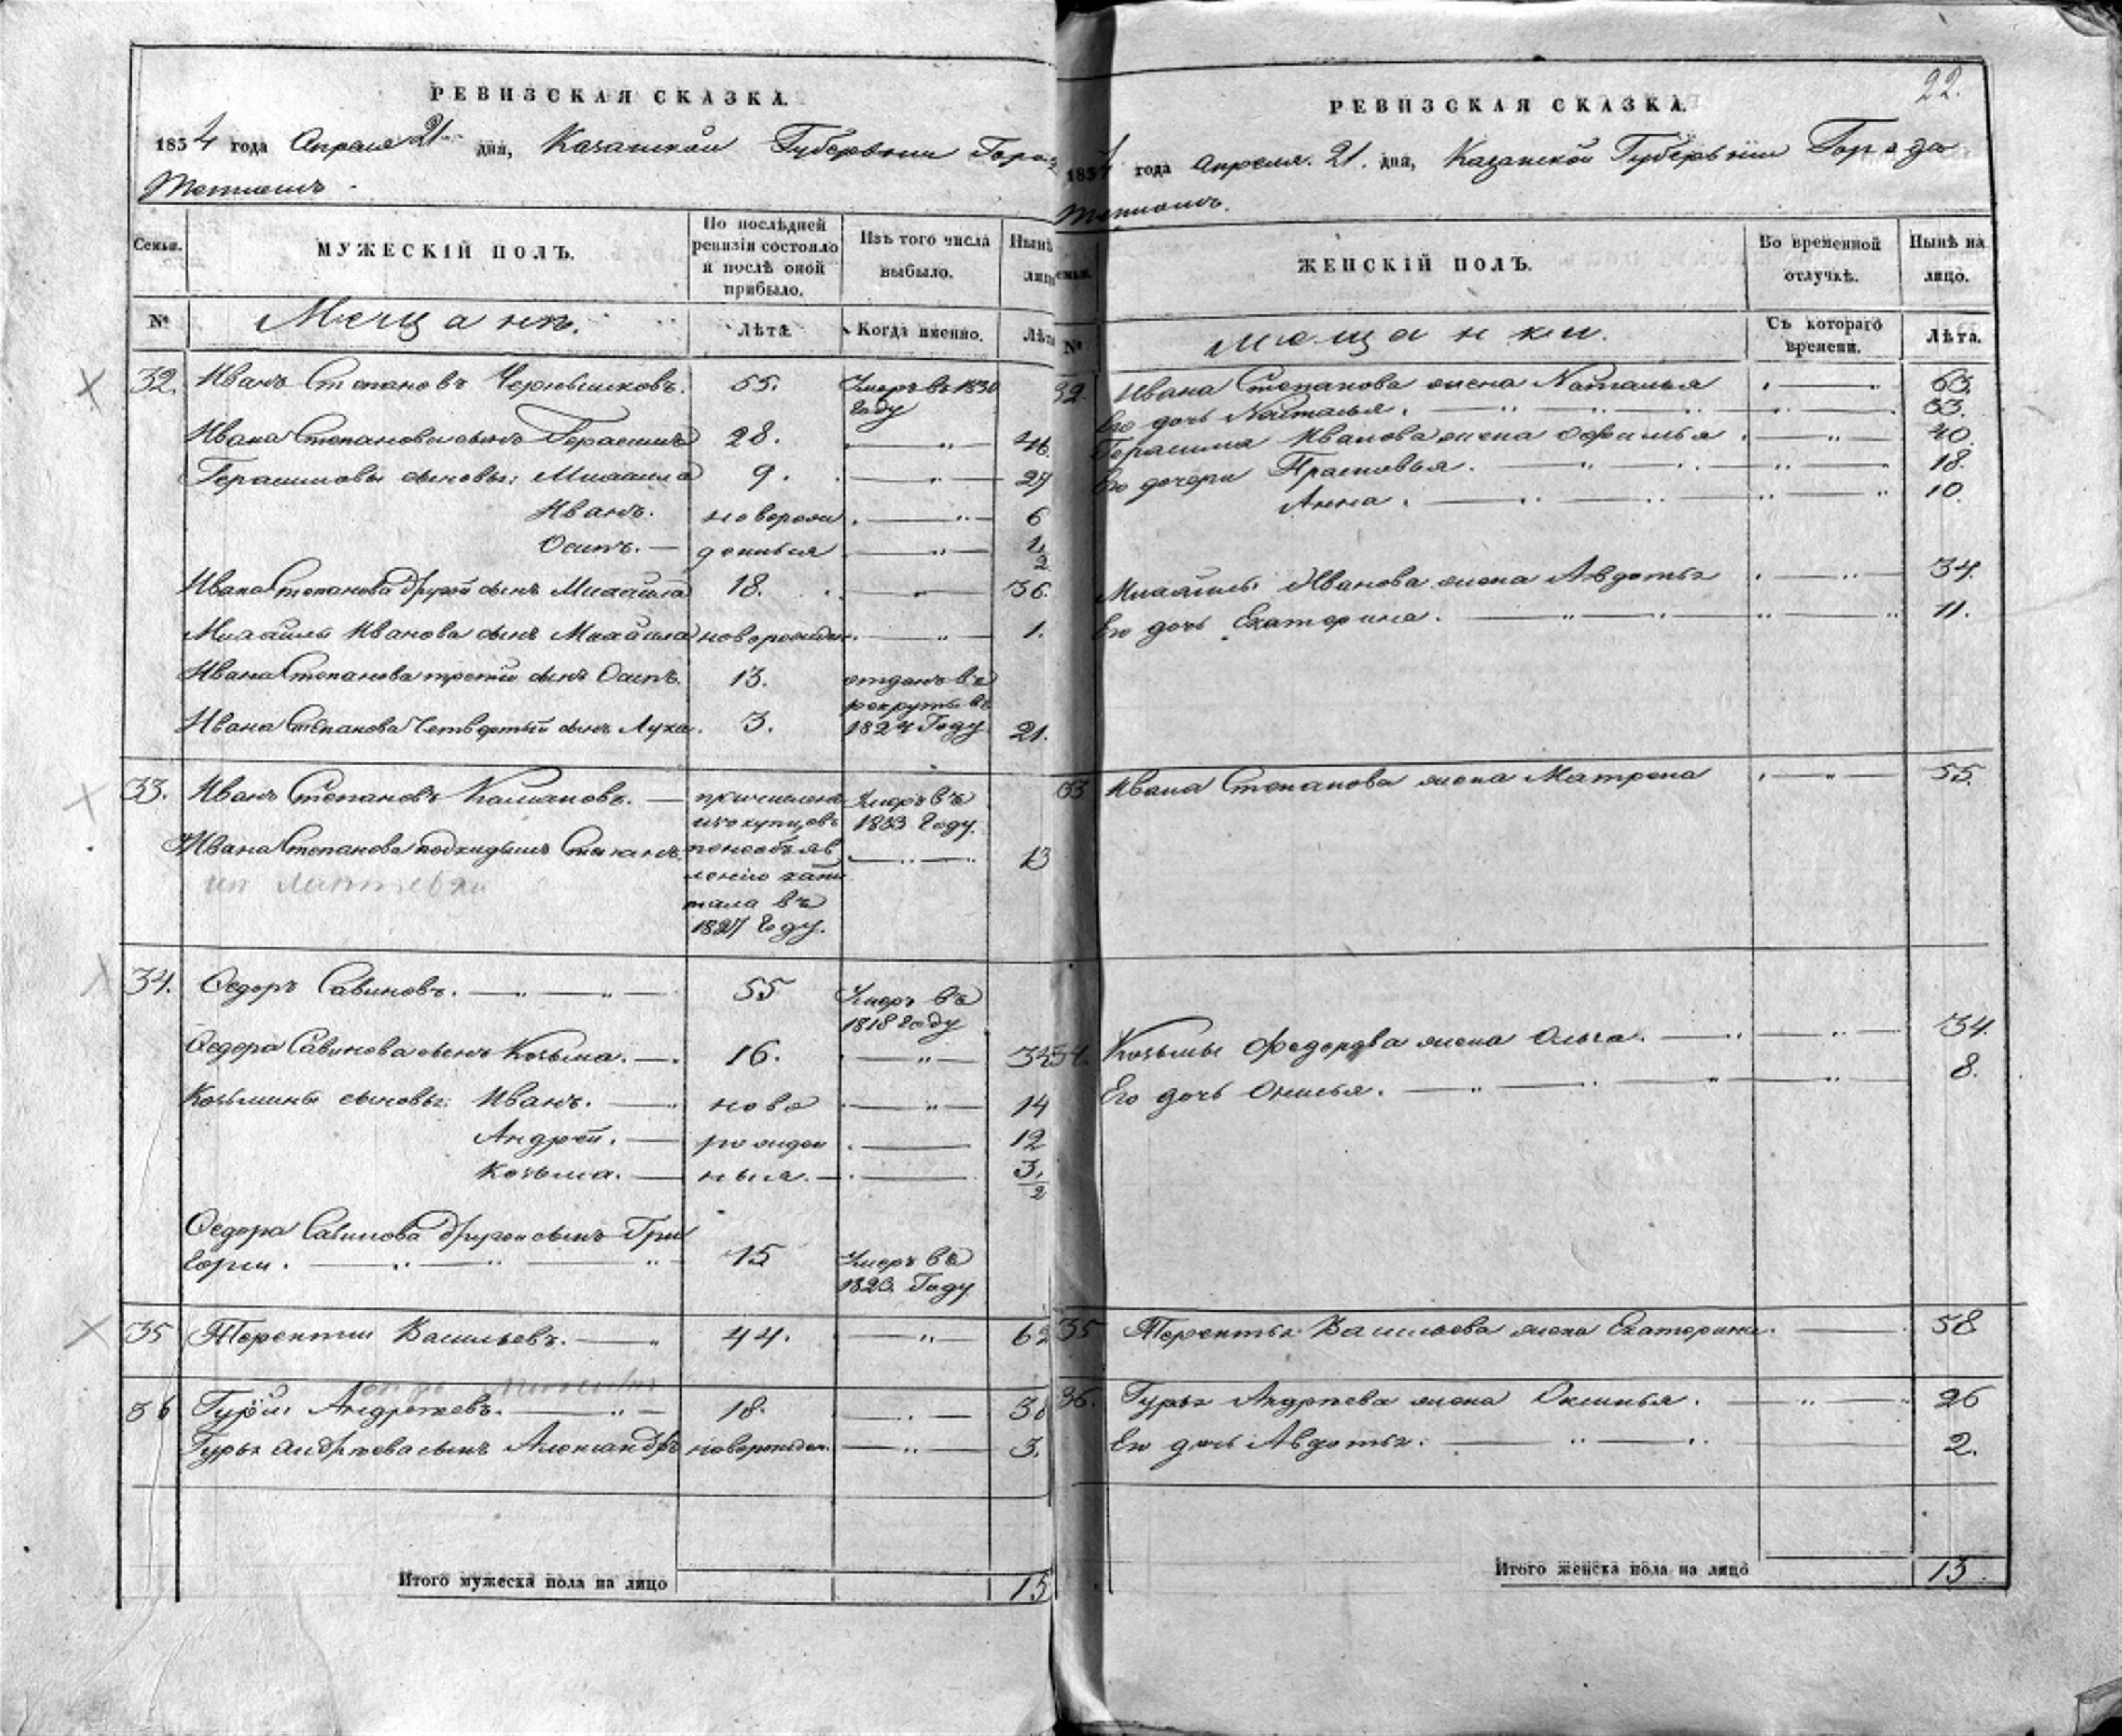 РЕВИЗСКАЯ СКАЗКА.
1834 года Апреля 21 дня, Казанской Губернии Горо
Тетюшъ.
Семьи.
МУЖЕСКІЙ ПОЛЪ.
По послѣдней ревизіи состояло и послѣ оной прибыло.
Изъ того числа выбыло.
Нынѣ лицо
№
Мещане.
Лѣта.
Когда именно.
Лѣта
32. Иванъ Степановъ Чернышковъ. 55. Умеръ въ 1830 году
Ивана Степанова сынъ Герасимъ 28. 46.
Герасимовы сыновья: Михаила 9. 27
Иванъ. новорож 6
Осипъ. денныя 1/2
Ивана Степанова другой сынъ Михайла 18. 36.
Михайлы Иванова сынъ Михайла новорожден. 1.
Ивана Степанова третій сынъ Осипъ. 13. отданъ въ рекруты въ 1824 Году
Ивана Степанова Четвертый сынъ Лука. 3. 21.
33. Иванъ Степановъ причисленъ изъ купцовъ Умеръ въ 1833 году.
Ивана Степанова подкидышъ Степанъ по необъяв 13
лению капи
тала въ
1827 году.
34. Федоръ Савиновъ. 55 Умеръ въ 1818 году
Федора Савинова сынъ Козьма. 16. 34
Козьмины сыновья: Иванъ. ново 14
Андрей. рожден 12
Козьма. ныя. 3/2
Федора Савинова другой сынъ Гри
горій. 15 Умеръ въ 1823. Году
35 Терентій Васильевъ. 44. 62
36 Гурій Андреевъ. 18. 36
Гурья Андреева сынъ Александръ новорожден. 3.
Итого мужеска пола на лицо 15
22.
РЕВИЗСКАЯ СКАЗКА.
1834 года Апреля 21. дня, Казанской Губерніи Города
Тетюшъ.
семьи.
ЖЕНСКІЙ ПОЛЪ.
Во временной отлучкѣ.
Нынѣ на лицо.
№
Мещанки.
Съ котораго времени.
Лѣта.
32. Ивана Степанова жена Наталья 63.
Его дочь Наталья. 33.
Герасима Иванова жена Офимья 40.
Его дочери Прасковья. 18.
Анна. 10.
Михайлы Иванова жена Авдотья 34.
Его дочь Екатерина. 11.
33 Ивана Степанова жена Матрена 55.
34. Козьмы Федорова жена Ольга. 34.
Его дочь 8.
35 Терентья Васильева жена Екатерина. 58
36. Гурья Андреева жена Оксинья. 26
Его дочь Авдотья. 2.
Итого женска пола на лицо 13.